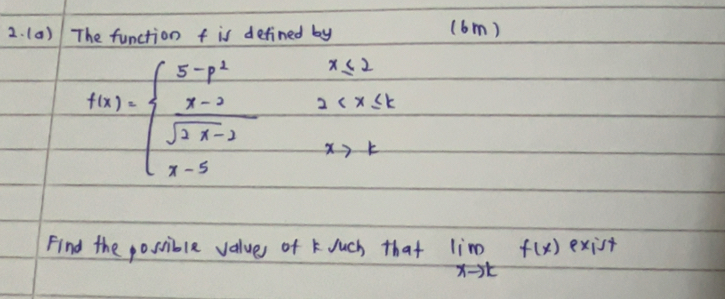 2.(a) The function f is defined by (6m)
5-p² x≤2
f(x) = { x-2 2<x≤k
√2x-2
x>k
x-5
Find the possible values of k such that lim f(x) exist
x→k